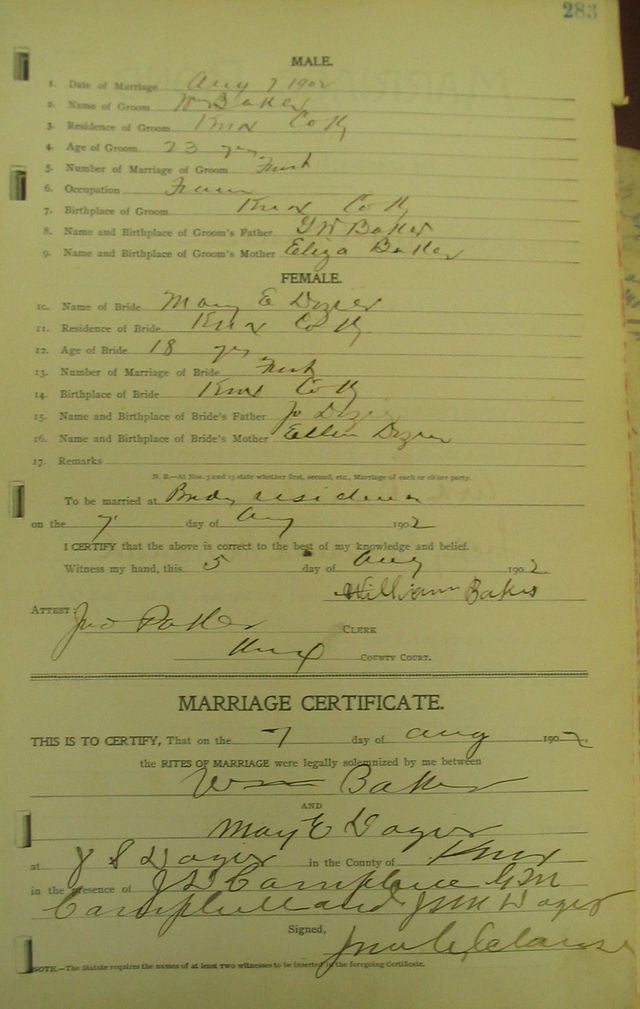 283
MALE.
1. Date of Marriage Aug 7 1902
2. Name of Groom Wm Baker
3. Residence of Groom Knox Co Ky
4. Age of Groom 23 yrs
5. Number of Marriage of Groom First
6. Occupation Farmer
7. Birthplace of Groom Knox Co Ky
8. Name and Birthplace of Groom's Father G W Baker
9. Name and Birthplace of Groom's Mother Eliza Baker
FEMALE.
10. Name of Bride Mary E Dozier
11. Residence of Bride Knox Co Ky
12. Age of Bride 18 yrs
13. Number of Marriage of Bride First
14. Birthplace of Bride Knox Co Ky
15. Name and Birthplace of Bride's Father Jo Dozier
16. Name and Birthplace of Bride's Mother Ellen Dozier
17. Remarks
N. B.—At Nos. 5 and 13 state whether first, second, etc., Marriage of each or either party.
To be married at Brides residence
on the 7 day of Aug 1902
I CERTIFY that the above is correct to the best of my knowledge and belief.
Witness my hand, this 5 day of Aug 1902
William Baker
ATTEST: Jno Parker CLERK
Knox COUNTY COURT.
MARRIAGE CERTIFICATE.
THIS IS TO CERTIFY, That on the 7 day of Aug 1902
the RITES OF MARRIAGE were legally solemnized by me between
Wm Baker
AND
Mary E Dozier
at J S Dozier in the County of Knox
in the presence of J D Campbell G M
Campbell and J M Dozier
Signed,
NOTE.—The Statute requires the names of at least TWO witnesses to be inserted in the foregoing Certificate.